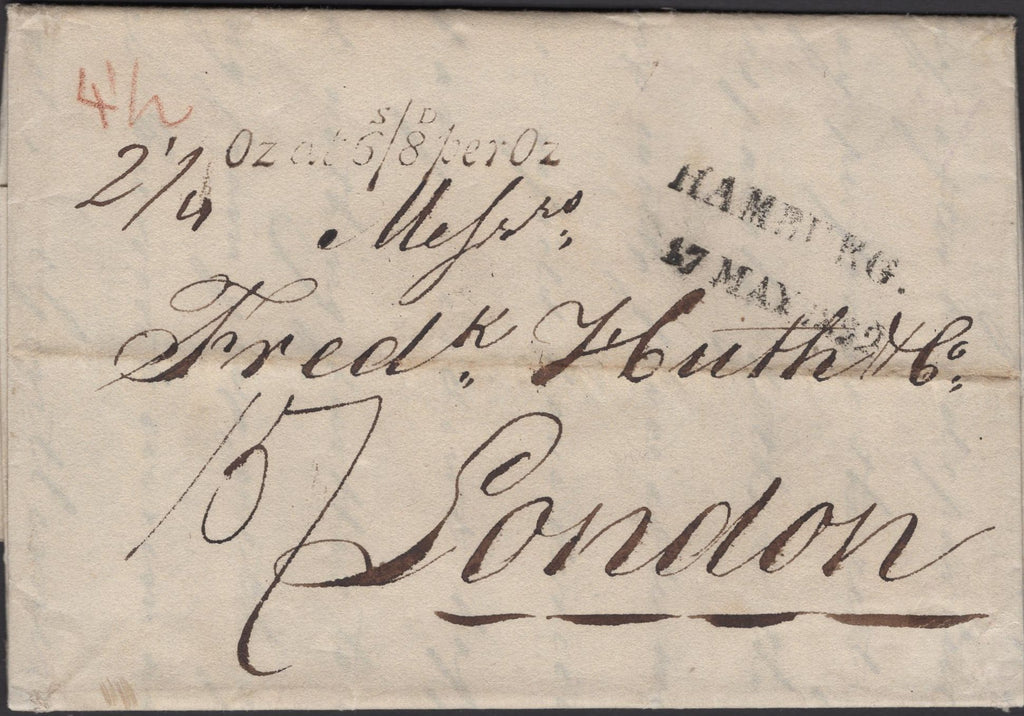 4 1/2
2 1/4 Oz at 6/8 per Oz
S/D
HAMBURG.
17 MAY 1832
Messrs.
Fredk. Huth & Co.
London